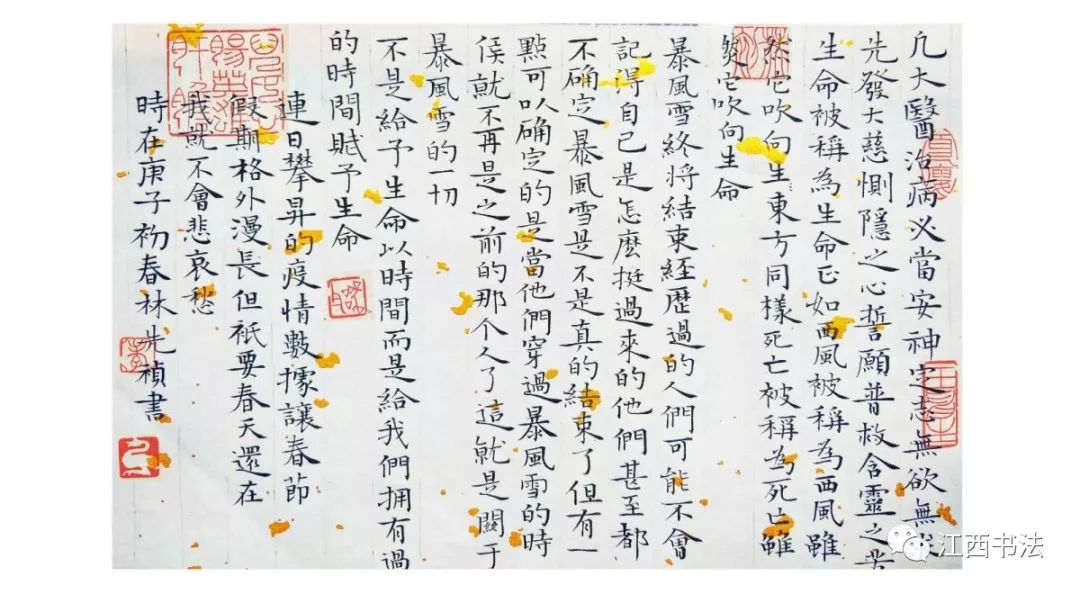 凡大醫治病必當安神定志無欲無求
先發大慈惻隱之心誓願普救含靈之苦
生命被稱為生命正如西風被稱為西風雖
然它吹向生東方同樣死亡被稱為死亡雖
然它吹向生命
暴風雪終將結束經歷過的人們可能不會
記得自己是怎麼挺過來的他們甚至都
不确定暴風雪是不是真的結束了但有一
點可以确定的是當他們穿過暴風雪的時
侯就不再是之前的那个人了這就是關于
暴風雪的一切
不是給予生命以時間而是給我們拥有過
的時間賦予生命
連日攀昇的疫情數據讓春節
假期格外漫長但祇要春天還在
我就不會悲哀愁
時在庚子初春林先禎書
江西书法